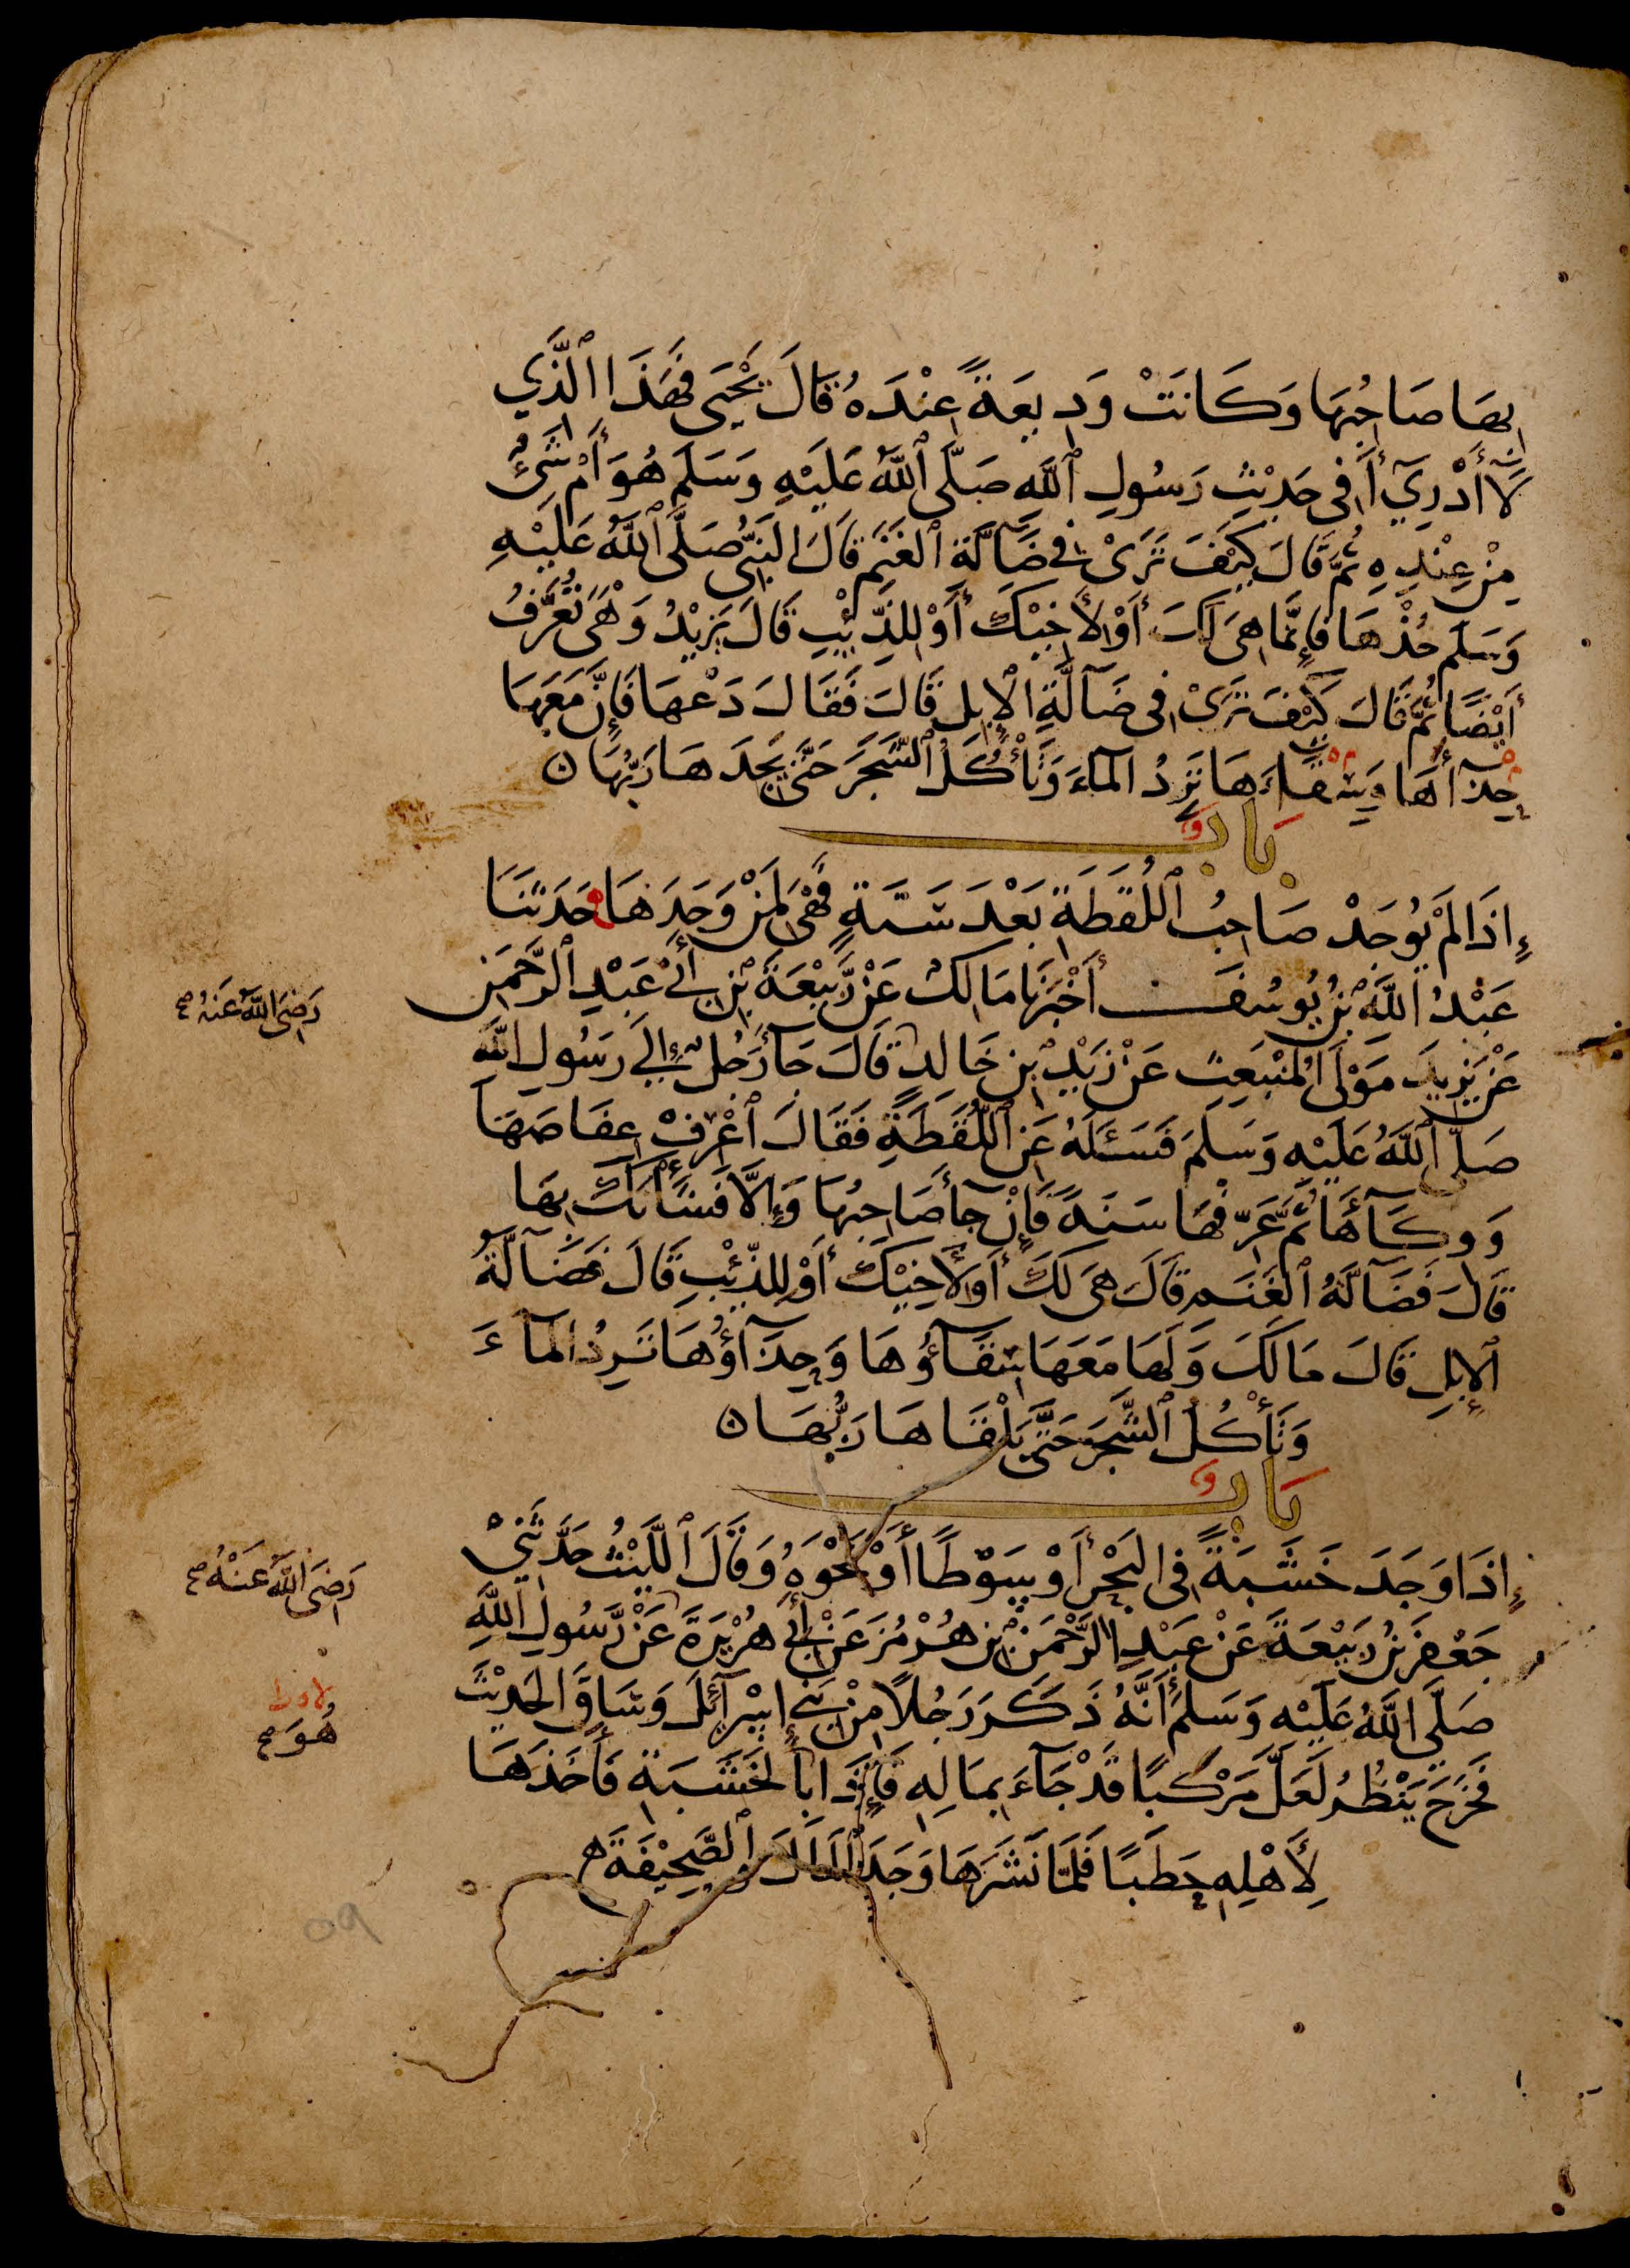 بِهَا صَاحِبُهَا وَكَانَتْ وَدِيعَةً عِنْدَهُ قَالَ يَحْيَى فَهَذَا الَّذِي
لَا أَدْرِي أَفِي حَدِيْثِ رَسُولِ اللَّهِ صَلَّى اللَّهُ عَلَيْهِ وَسَلَّمَ هُوَ أَمْ شَيْءٌ
مِنْ عِنْدِهِ ثُمَّ قَالَ كَيْفَ تَرَىْ فِي ضَآلَّةِ الْغَنَمِ قَالَ النَّبِيُّ صَلَّى اللَّهُ عَلَيْهِ
وَسَلَّمَ خُذْهَا فَإِنَّمَا هِيَ لَكَ أَوْ لِأَخِيْكَ أَوْ لِلذِّئْبِ قَالَ يَزِيْدُ وَهْيَ تُعَرَّفُ
أَيْضًا ثُمَّ قَالَ كَيْفَ تَرَىْ فِي ضَآلَّةِ الْإِبِلِ قَالَ فَقَالَ دَعْهَا فَإِنَّ مَعَهَا
حِذَآأَهَا وَسِقَاءَهَا تَرِدُ الْمَآءَ وَتَأْكُلُ الشَّجَرَ حَتَّى يَجِدَهَا رَبُّهَا ن
بَابٌ
إِذَا لَمْ يُوجَدْ صَاحِبُ اللُّقَطَةِ بَعْدَ سَنَةٍ فَهْيَ لِمَنْ وَجَدَهَا ه حَدَّثَنَا
عَبْدُ اللَّهِ بْنُ يُوسُفَ أَخْبَرَنَا مَالِكٌ عَنْ رَّبِيْعَةَ بْنِ أَبِيْ عَبْدِ الرَّحْمَنِ
عَنْ يَزِيدَ مَوْلَى الْمُنْبَعِثِ عَنْ زَيْدِ بْنِ خَالِدٍ قَالَ جَآءَ رَجُلٌ إِلَى رَسُولِ اللَّهِ
رَضِيَ اللَّهُ عَنْهُ صح
صَلَّى اللَّهُ عَلَيْهِ وَسَلَّمَ فَسَئَلَهُ عَنِ اللُّقَطَةِ فَقَالَ اعْرِفْ عِفَاصَهَا
وَوِكَآأَهَا ثُمَّ عَرِّفْهَا سَنَةً فَإِنْ جَآأَ صَاحِبُهَا وَإِلَّا فَشَأْنَكَ بِهَا
قَالَ فَضَآلَّةُ الْغَنَمِ قَالَ هِيَ لَكَ أَوْ لِأَخِيْكَ أَوْ لِلذِّئْبِ قَالَ فَضَآلَّةُ
الْإِبِلِ قَالَ مَا لَكَ وَلَهَا مَعَهَا سِقَآؤُهَا وَحِذَآؤُهَا تَرِدُ الْمَآءَ
وَتَأْكُلُ الشَّجَرَ حَتَّى يَلْقَاهَا رَبُّهَا ن
بَابٌ
إِذَا وَجَدَ خَشَبَةً فِي الْبَحْرِ أَوْ سَوْطًا أَوْ نَحْوَهُ وَقَالَ اللَّيْثُ حَدَّثَنِيْ
جَعْفَرُ بْنُ رَبِيْعَةَ عَنْ عَبْدِ الرَّحْمَنِ بْنِ هُرْمُزَ عَنْ أَبِيْ هُرَيْرَةَ عَنْ رَّسُولِ اللَّهِ
رَضِيَ اللَّهُ عَنْهُ صح
صَلَّى اللَّهُ عَلَيْهِ وَسَلَّمَ أَنَّهُ ذَكَرَ رَجُلًا مِنْ بَنِي إِسْرَآئِلَ وَسَاقَ الْحَدِيْثَ
هُوَ صح
فَخَرَجَ يَنْظُرُ لَعَلَّ مَرْكَبًا قَدْ جَآءَ بِمَالِهِ فَإِذَا بِالْخَشَبَةِ فَأَخَذَهَا
لِأَهْلِهِ حَطَبًا فَلَمَّا نَشَرَهَا وَجَدَ الْمَالَ وَالصَّحِيْفَةَ ه